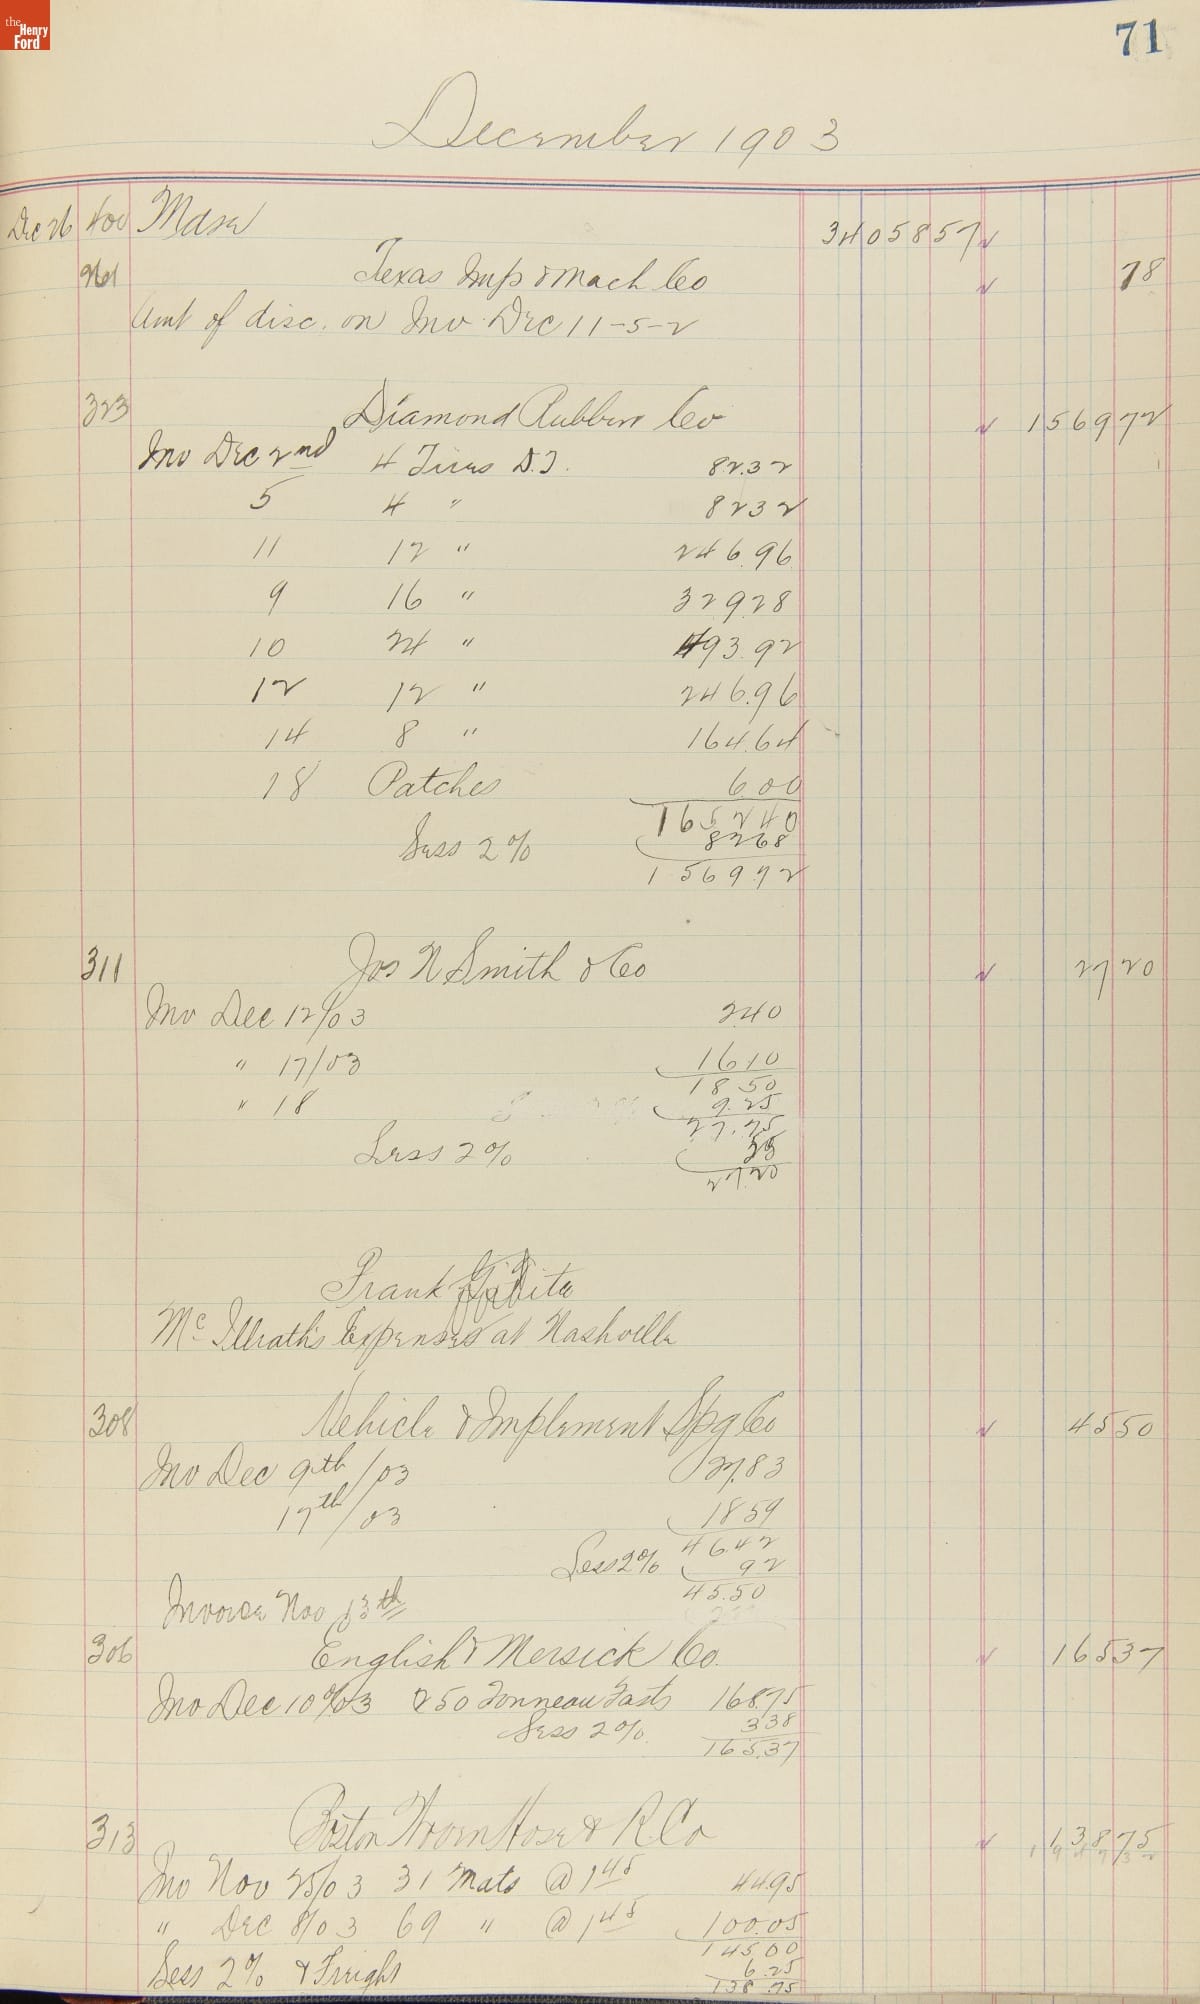 the Henry Ford
71
December 1903
Dec 26 400 Mdse 34058 57
Texas Imp & Mach Co 78
Amt of disc. on Inv. Dec 11-5-2
323 Diamond Rubber Co 1569 72
Inv Dec 2nd 4 Tires D.T. 82.32
5 4 " 82 32
11 12 " 246.96
9 16 " 329.28
10 24 " 493.92
12 12 " 246.96
14 8 " 164.64
18 Patches 6.00
1652 40
Less 2% 82 68
1569.92
311 Jos N Smith & Co 27 20
Inv Dec 12/03 2.40
" 17/03 16 10
18 50
" 18 9.25
27.75
Less 2% 55
27.20
Frank
McIllrath's Expenses at Nashville
308 Vehicle & Implement Spg Co 45 50
Inv Dec 9th/03 27.83
17th/03 18 59
46.42
Less 2% 92
45.50
Invoice Nov 13th
306 English & Mersick Co. 165 37
Inv Dec 10 03 250 Tonneau Fasts 168.75
Less 2% 3 38
165.37
313 Boston Woven Hose & R Co 138 75
Inv Nov 25/03 31 Mats @ 1 45 44.95
" Dec 8/03 69 " @ 1 45 100.05
145.00
Less 2% & Freight 6.25
138.75